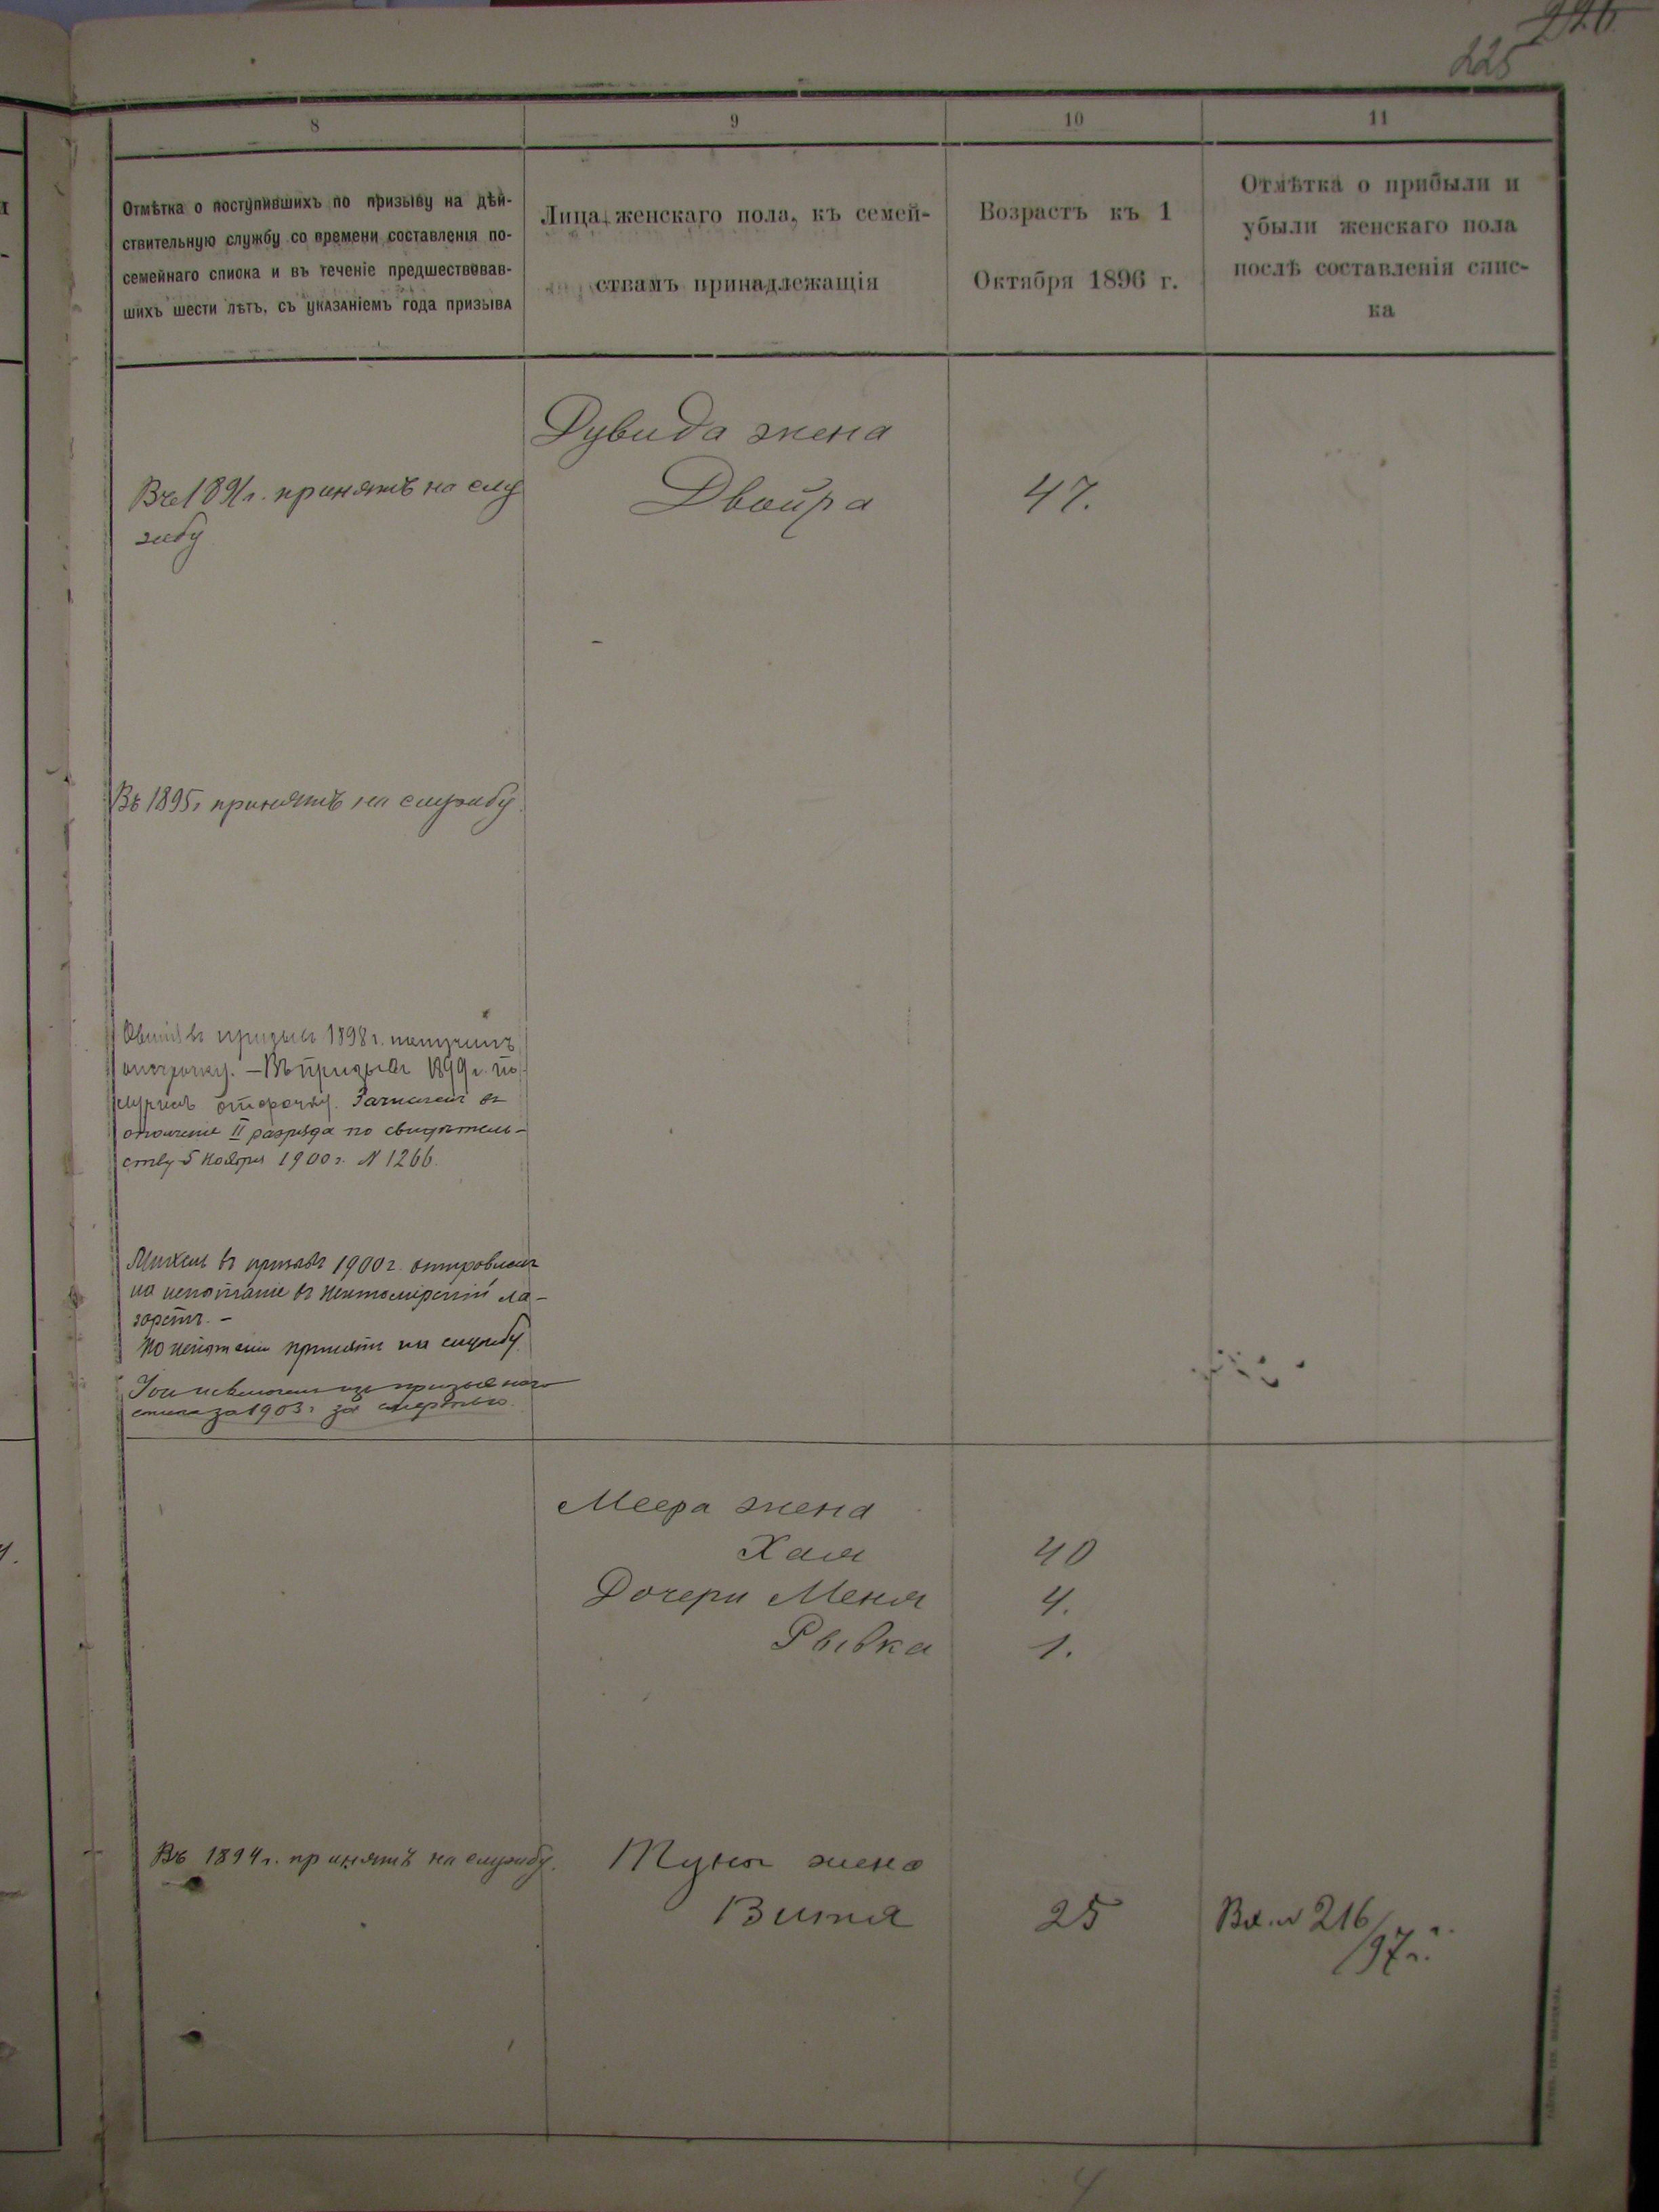 226
225
8
9
10
11
Отмѣтка о поступившихъ по призыву на дѣй-
ствительную службу со времени составленія по-
семейнаго списка и въ теченіе предшествовав-
шихъ шести лѣтъ, съ указаніемъ года призыва
Лица, женскаго пола, къ семей-
ствамъ принадлежащія
Возрастъ къ 1
Октября 1896 г.
Отмѣтка о прибыли и
убыли женскаго пола
послѣ составленія спис-
ка
Дувида жена
Въ 1891 г. принятъ на слу
жбу
Двойра
47.
Въ 1895 г. принятъ на службу.
въ призыв 1898 г. получилъ
отсрочку. — Въ призывъ 1899 г. по
лучилъ отсрочку. Зачислен въ
ополчение II разряда по свидѣтель-
ству 5 Ноября 1900 г. N 1266.
Михель въ призывъ 1900 г. отправленъ
на испытаніе въ Житомірскій ла-
заретъ. —
По испытании принятъ на службу.
исключенъ изъ призывного
списка за 1903 г. за смертью.
Меера жена
Хая
40
Дочери Меня
4.
Рывка
1.
Въ 1894 г. принятъ на службу.
Муня жена
Витя
25
Вх. № 216/97 г.